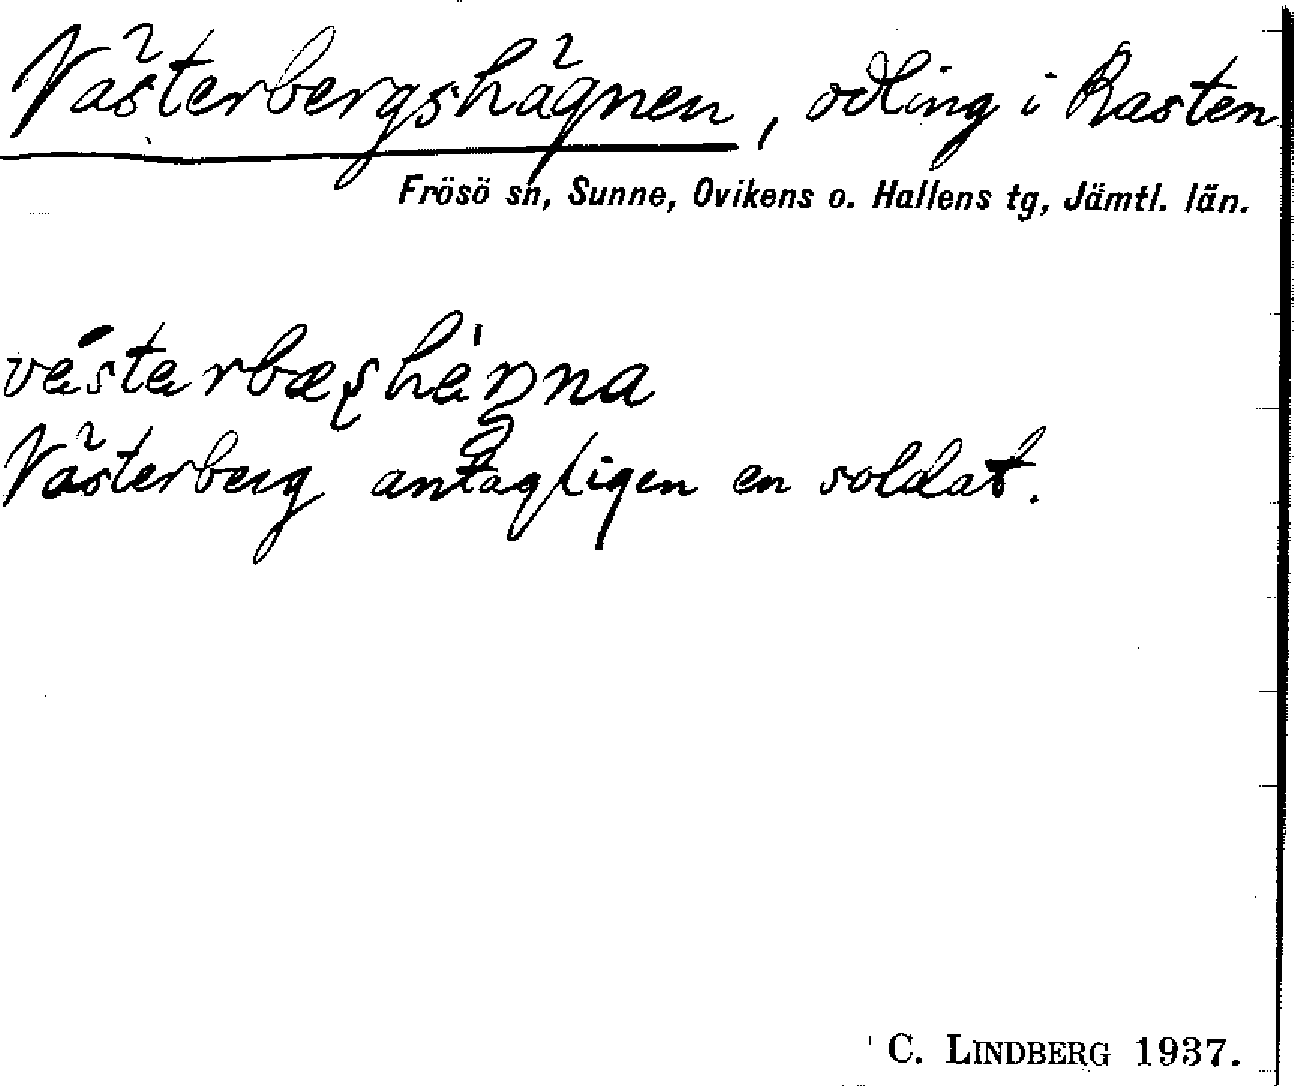 Västerbergshägnen, odling i Rasten
Frösö sn, Sunne, Ovikens o. Hallens tg, Jämtl. län.
Västerberg antagligen en soldat.
C. LINDBERG 1937.